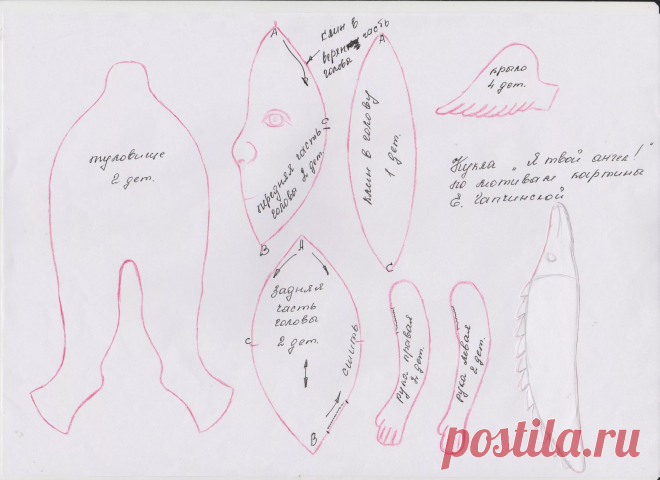 туловище
2 дет.
А
клин в
верхнюю часть
головы
С
передняя часть
головы 2 дет.
В
А
клин в голову
1 дет.
С
крыло
4 дет.
Кукла „Я твой ангел!"
по мотивам картины
Е. Гапчинской
А
задняя
часть
головы
2 дет.
С
сшить
В
рука правая
2 дет.
рука левая
2 дет.
postila.ru